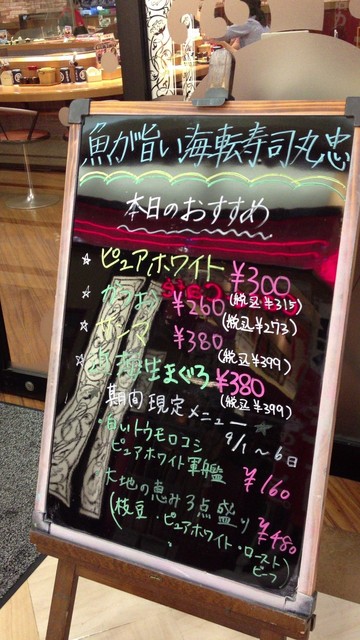 魚が旨い海転寿司丸忠
本日のおすすめ
☆ピュアホワイト ¥300
(税込¥315)
☆かつお ¥260
(税込¥273)
☆サンマ ¥380
(税込¥399)
☆生まぐろ ¥380
(税込¥399)
期間現定メニュー
9/1〜6日
・白いトウモロコシ
ピュアホワイト軍艦 ¥160
・大地の恵み3点盛り ¥480
(枝豆・ピュアホワイト・ロースト
ビーフ)